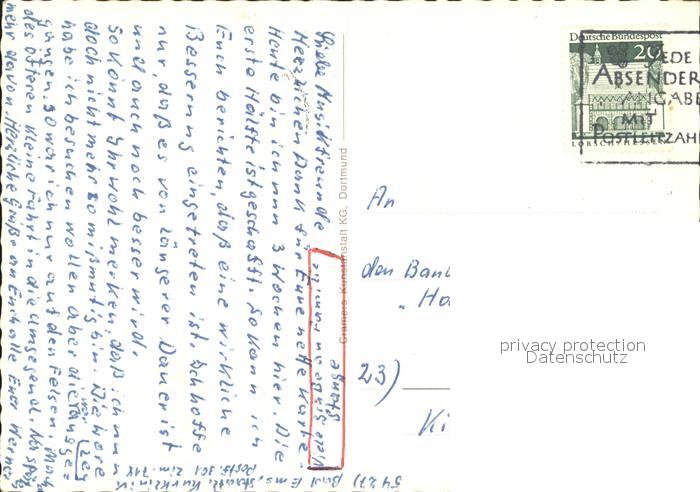 Liebe Musikfreunde
Herzlichen Dank für Eure nette Karte.
Heute bin ich nun 3 Wochen hier. Die
erste Hälfte ist geschafft. So kann ich
Euch berichten, daß eine wirkliche
Besserung eingetreten ist. Ich hoffe
nur, daß es von längerer Dauer ist
und auch noch besser wird.
So könnt Ihr wohl merken, daß ich nun
doch nicht mehr so mißmutig bin. Die
habe ich besuchen wollen aber die
gangen. So war ich nur auf den Felsen.
des öfteren kleine Fahrt in die Umgegend.
Herzliche Grüße an Euch alle Euer Werner
Viele Grüße an
5427) Bad Ems, staatl. Kurklinik
Postf. 361 Zim. 718
Cramers Kunstanstalt KG, Dortmund
Deutsche Bundespost
20
LORSCH/HESSEN
JEDE
ABSENDER
ANGABE
MIT
POSTLEITZAH
An
den Ban
„Ha
23)
Ki
privacy protection
Datenschutz